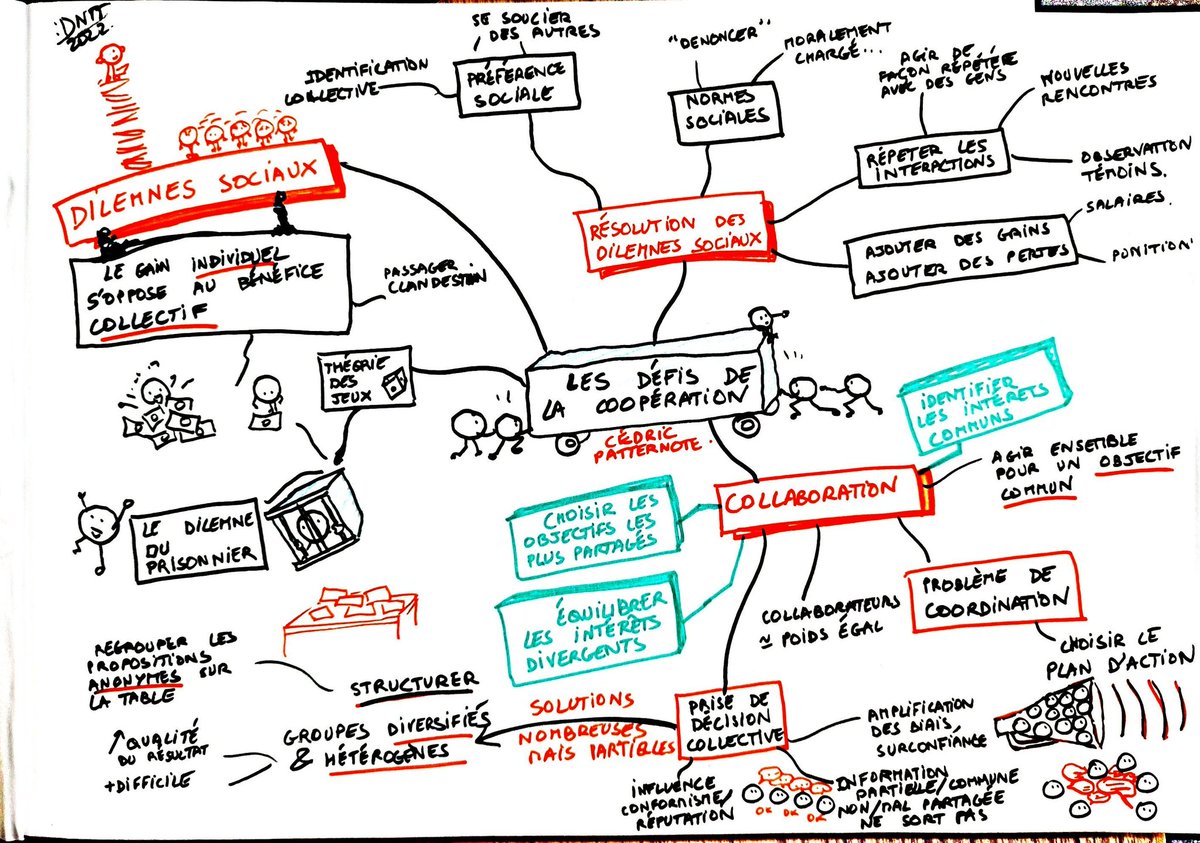 :DNTT
2022
DILEMNES SOCIAUX
LE GAIN INDIVIDUEL
S'OPPOSE AU BÉNÉFICE
COLLECTIF
PASSAGER
CLANDESTIN
IDENTIFICATION
COLLECTIVE
SE SOUCIER
DES AUTRES
PRÉFÉRENCE
SOCIALE
"DENONCER"
MORALEMENT
CHARGÉ...
NORMES
SOCIALES
AGIR DE
FAÇON RÉPÉTÉE
AVEC DES GENS
NOUVELLES
RENCONTRES
RÉPETER LES
INTERACTIONS
OBSERVATION
TÉMOINS.
RÉSOLUTION DES
DILEMNES SOCIAUX
AJOUTER DES GAINS
AJOUTER DES PERTES
SALAIRES.
PUNITION
THÉORIE
DES
JEUX
LES DÉFIS DE
LA COOPÉRATION
CÉDRIC
PATTERNOTE.
LE DILEMNE
DU
PRISONNIER
IDENTIFIER
LES INTÉRETS
COMMUNS
COLLABORATION
AGIR ENSEMBLE
POUR UN OBJECTIF
COMMUN
CHOISIR LES
OBJECTIFS LES
PLUS PARTAGÉS
ÉQUILIBRER
LES INTÉRÊTS
DIVERGENTS
COLLABORATEURS
≃ POIDS ÉGAL
PROBLÈME DE
COORDINATION
CHOISIR LE
PLAN D'ACTION
PRISE DE
DÉCISION
COLLECTIVE
AMPLIFICATION
DES BIAIS,
SURCONFIANCE
INFORMATION
PARTIELLE/COMMUNE
NON/MAL PARTAGÉE
NE SORT PAS
OK OK OK
INFLUENCE
CONFORMISME/
RÉPUTATION
SOLUTIONS
NOMBREUSES
MAIS PARTIELLES
STRUCTURER
GROUPES DIVERSIFIÉS
& HÉTÉROGÈNES
REGROUPER LES
PROPOSITIONS
ANONYMES SUR
LA TABLE
↗ QUALITÉ
DU RÉSULTAT
+ DIFFICILE